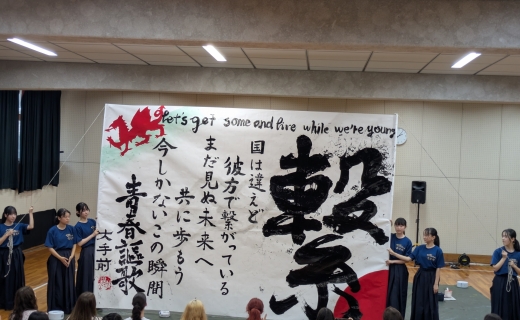 Let's get some and fire while we're young
繋
国は違えど
彼方で繋がっている
まだ見ぬ未来へ
共に歩もう
今しかないこの瞬間
青春謳歌
大手前